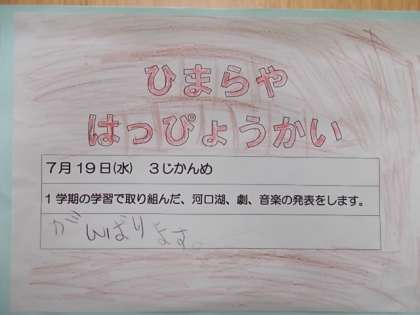 ひまらや
はっぴょうかい
7月19日(水)　3じかんめ
1学期の学習で取り組んだ、河口湖、劇、音楽の発表をします。
がんばります。